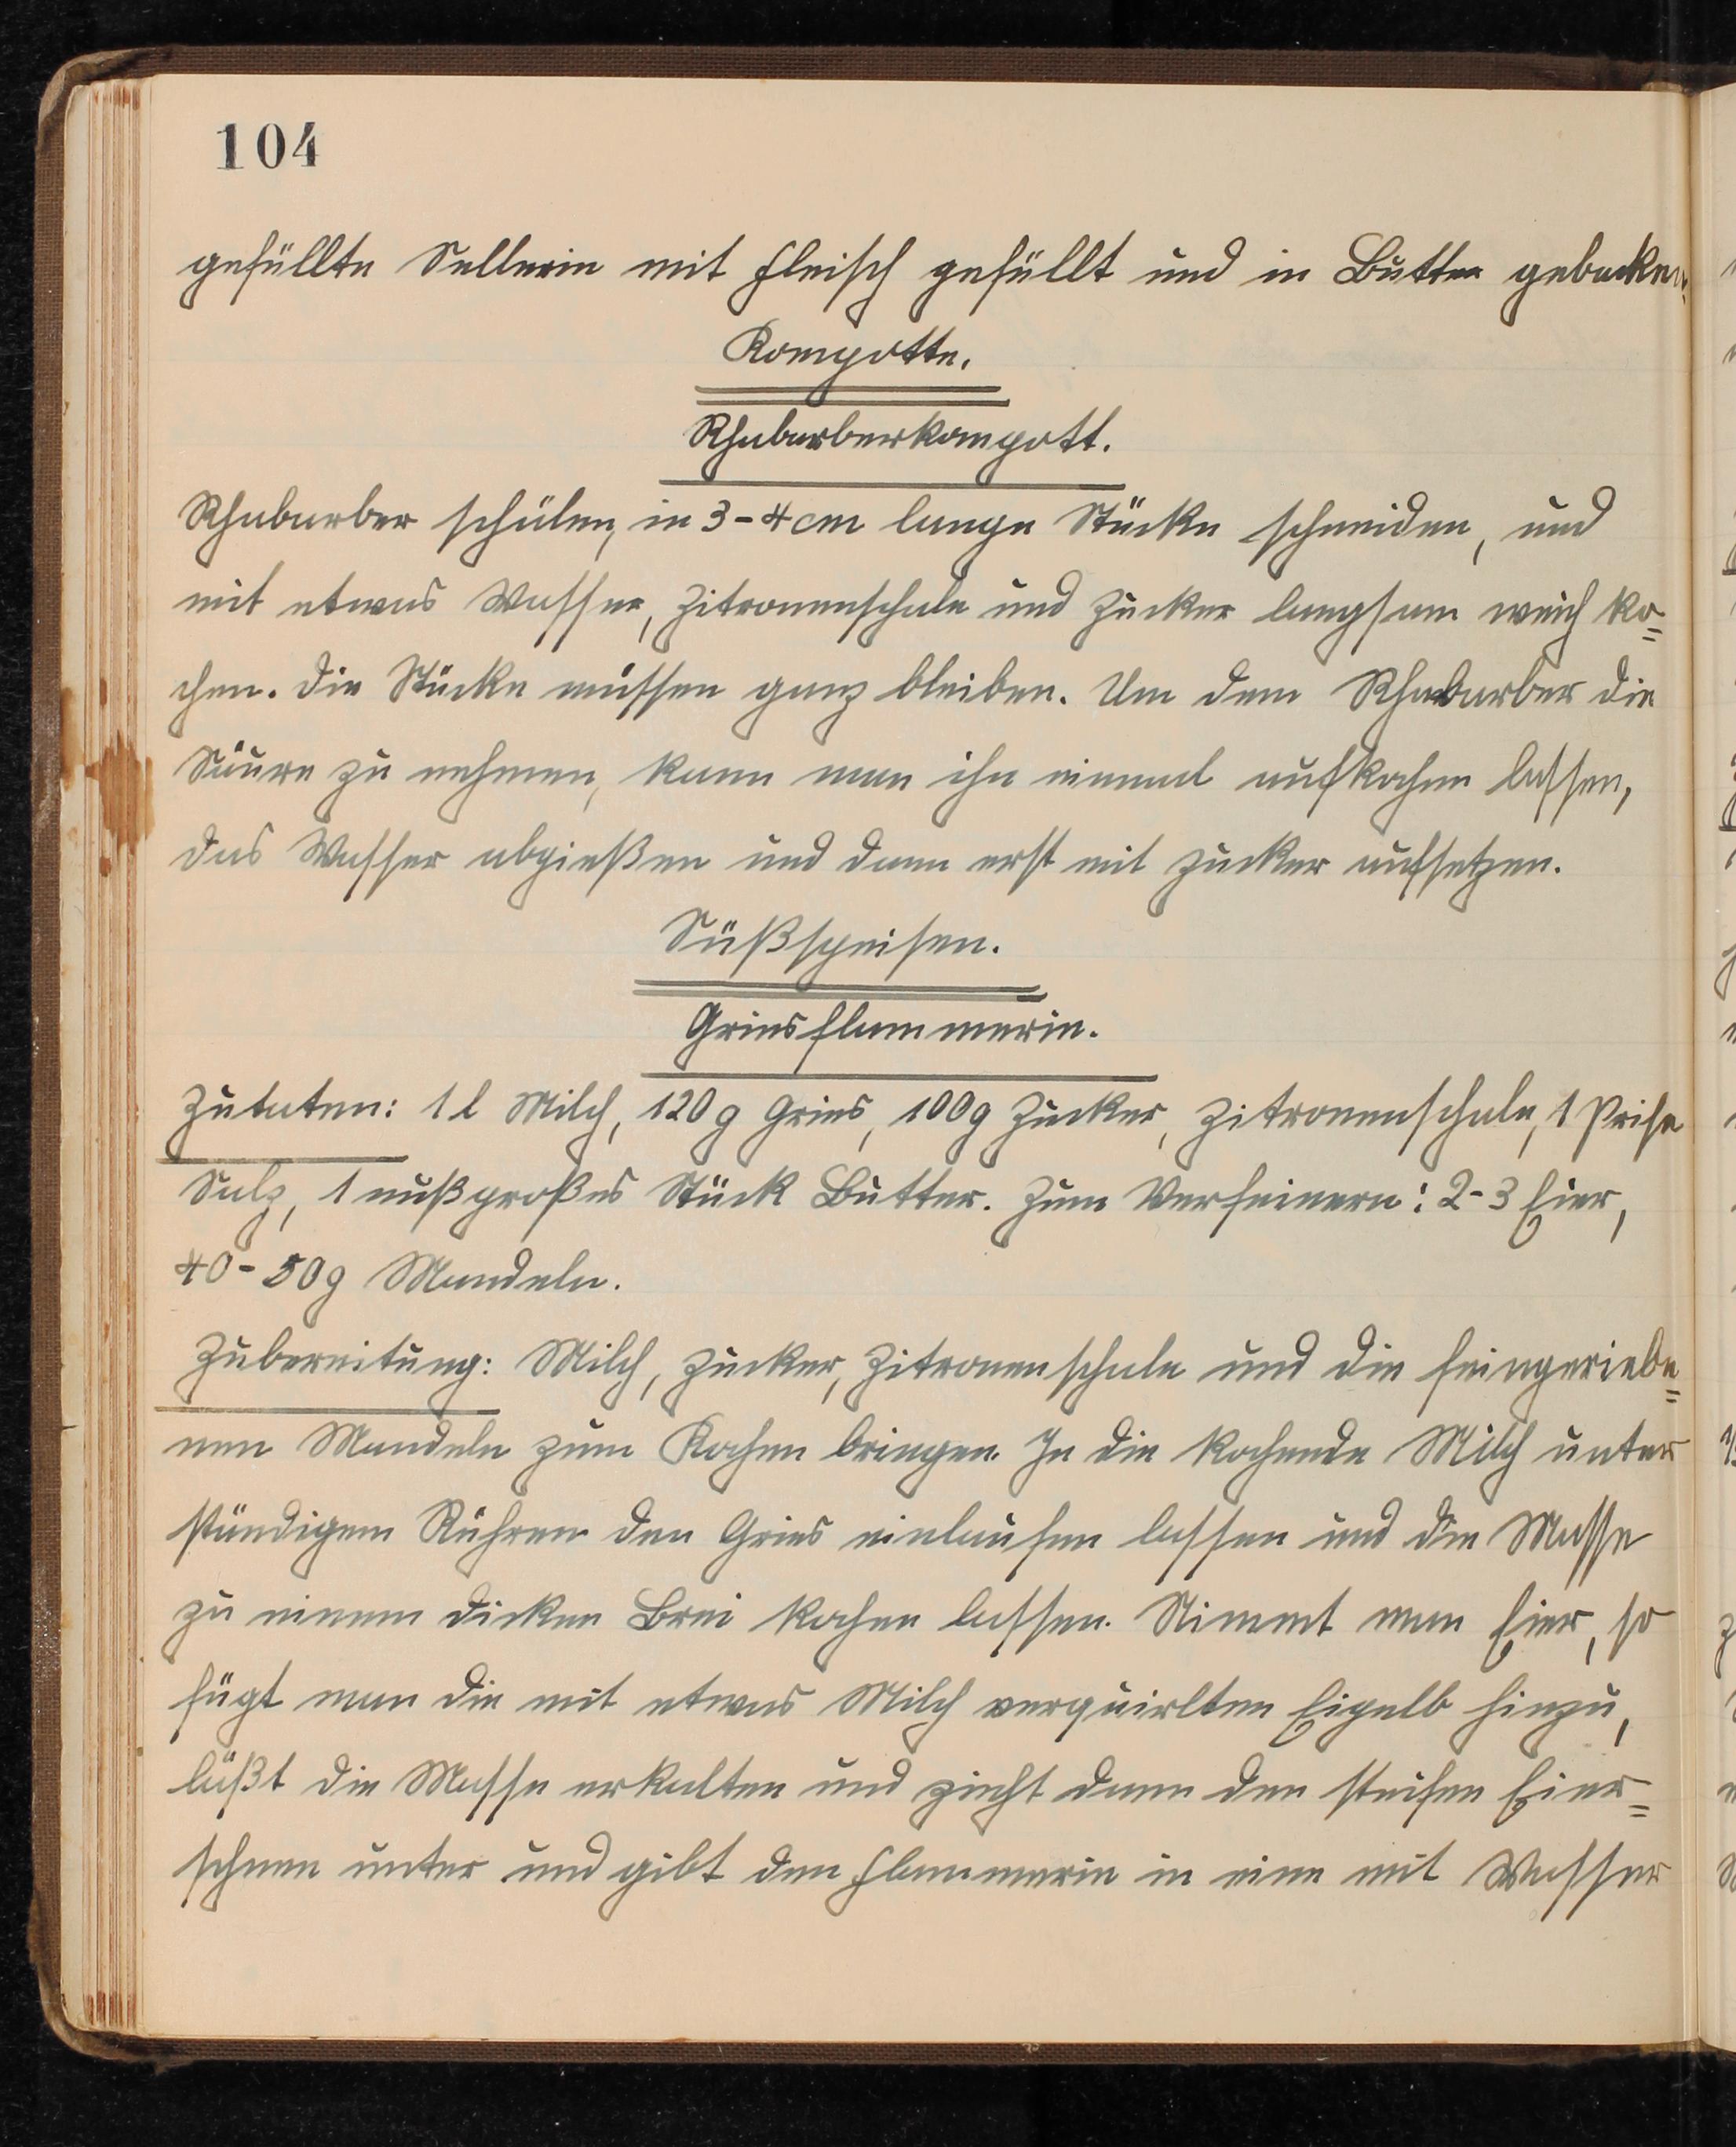 104
gefüllte Sellerie mit Fleisch gefüllt und in Butter gebacken.
Kompotte.
Rhabarberkompott.
Rhabarber schälen, in 3-4 cm lange Stücke schneiden, und
mit etwas Wasser, Zitronenschale und Zucker langsam weich ko=
chen. Die Stücke müssen ganz bleiben. Um dem Rhabarber die
Säure zu nehmen, kann man ihn einmal aufkochen lassen,
das Wasser abgießen und dann erst mit Zucker aufsetzen.
Süßspeisen.
Griesflammerie.
Zutaten: 1 l Milch, 120 g Gries, 100 g Zucker, Zitronenschale, 1 Prise
Salz, 1 nußgroßes Stück Butter. Zum Verfeinern: 2-3 Eier,
40-50 g Mandeln.
Zubereitung: Milch, Zucker, Zitronenschale und die feingeriebe=
nen Mandeln zum Kochen bringen. In die kochende Milch unter
ständigem Rühren den Gries einlaufen lassen und die Masse
zu einem dicken Brei kochen lassen. Nimmt man Eier, so
fügt man die mit etwas Milch verquirlten Eigelb hinzu,
läßt die Masse erkalten und zieht dann den steifen Eier=
schnee unter und gibt den Flammerie in eine mit Wasser